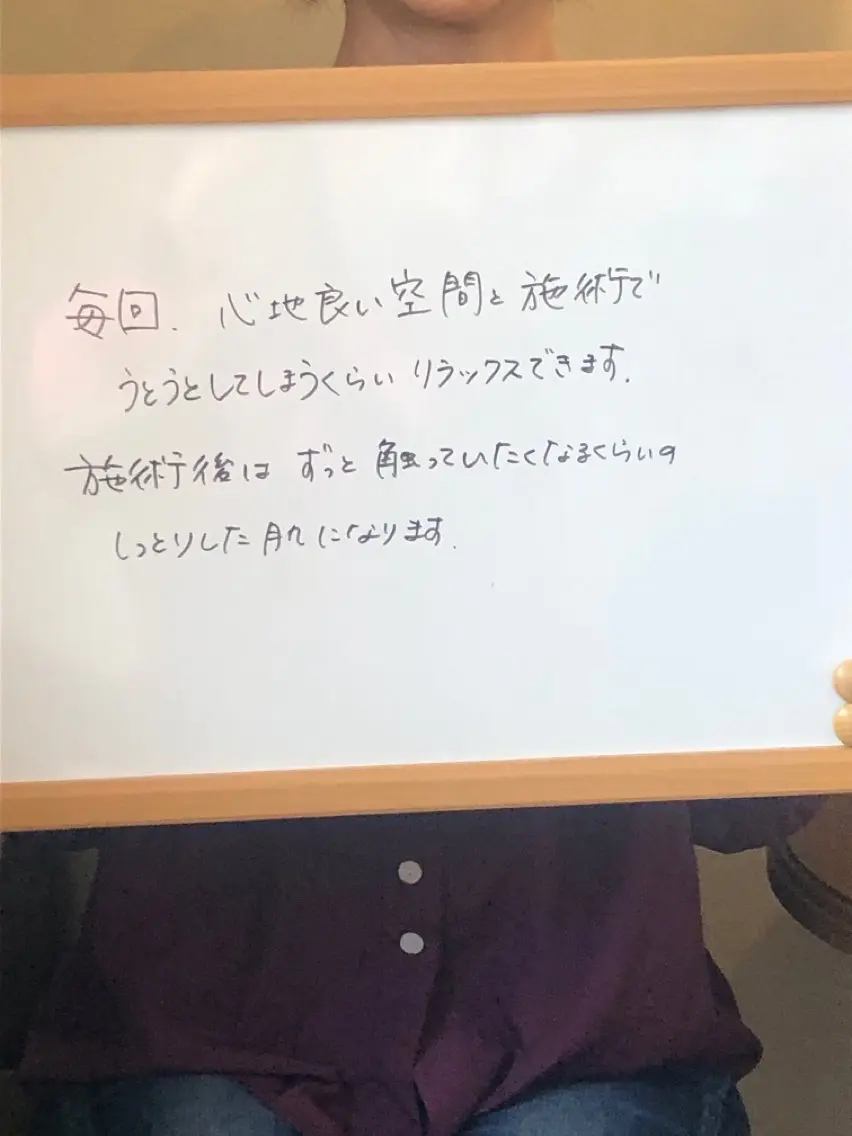 毎回、心地良い空間と施術で
うとうとしてしまうくらいリラックスできます。
施術後は ずっと触っていたくなるくらいの
しっとりした肌になります。